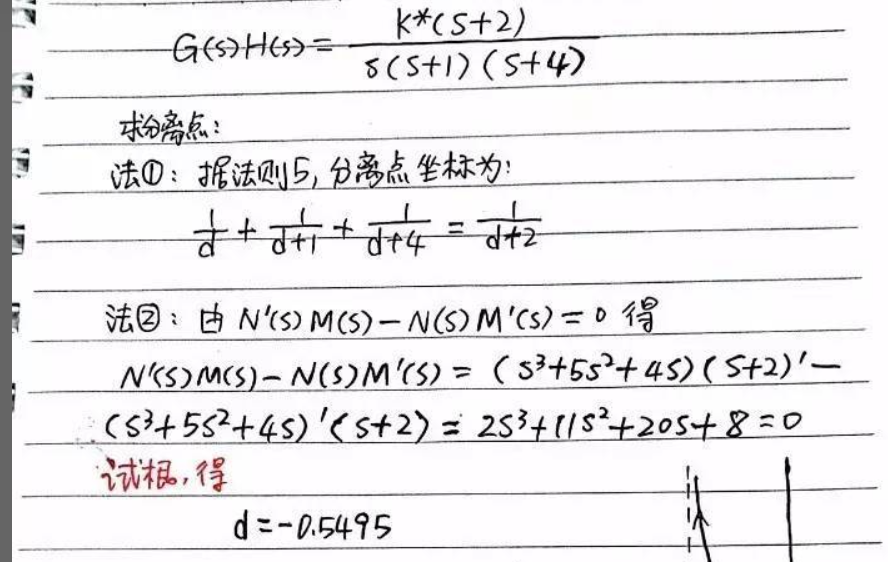 G(s)H(s) = K*(s+2) / s(s+1)(s+4)
求分离点:
法①: 据法则5, 分离点坐标为:
1/d + 1/(d+1) + 1/(d+4) = 1/(d+2)
法②: 由 N'(s)M(s) − N(s)M'(s) = 0 得
N'(s)M(s) − N(s)M'(s) = (s³+5s²+4s)(s+2)' −
(s³+5s²+4s)'(s+2) = 2s³+11s²+20s+8=0
试根, 得
d = -0.5495